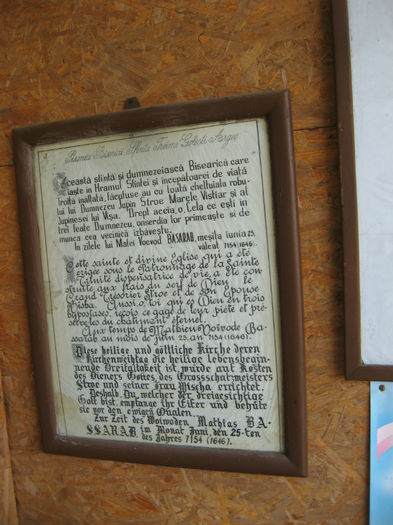 Pisania Bisericii Sfânta Treime Golești-Argeș
Această sfîntă și dumnezeiască Biserică care
iaste în Hramul Sfintei și începătoarei de viață
Troiță înălțată, făcutuse au cu toată cheltuiala robu-
lui lui Dumnezeu Jupîn Stroe Marele Vistiar și al
Jupînesei lui Vișa. Drept aceia o, Cela ce ești în
trei feațe Dumnezeu, osîrdia lor primeaște și de
munca cea vecinică izbăvește.
În zilele lui Matei Voevod BASARAB, meșița iunia 25.
văleat 7154 (1646).
Cette sainte et divine Eglise qui a été
erigée sous le Patronnage de la Sainte
Trinité dispensatrice de vie, a été con-
struite aux frais du serf de Dieu le
Grand Trésorier Stroe et de Son Epouse
Vișoba. Aussi o toi qui es Dieu en trois
hypostases, reçois ce gage de leur piété et pré-
serve-les du châtiment éternel.
Aux temps de Mathieu Voïvode Ba-
sarab au mois de juin 25, an 7154 (1646).
Diese heilige und göttliche Kirche deren
Kirchenweihtag die heilige Lebensbegin-
nende Dreifaltigkeit ist, wurde auf Kosten
des Dieners Gottes, des Grossschatzmeisters
Stroe und seiner Frau Wischa errichtet.
Deshalb, Du, welcher der dreigesichtige
Gott bist, empfange ihr Eifer und behüte
sie vor den ewigen Qualen.
Zur Zeit des Woiwoden Mathias BA-
SSARAB, im Monat Juni, den 25-ten
des Jahres 7154 (1646).